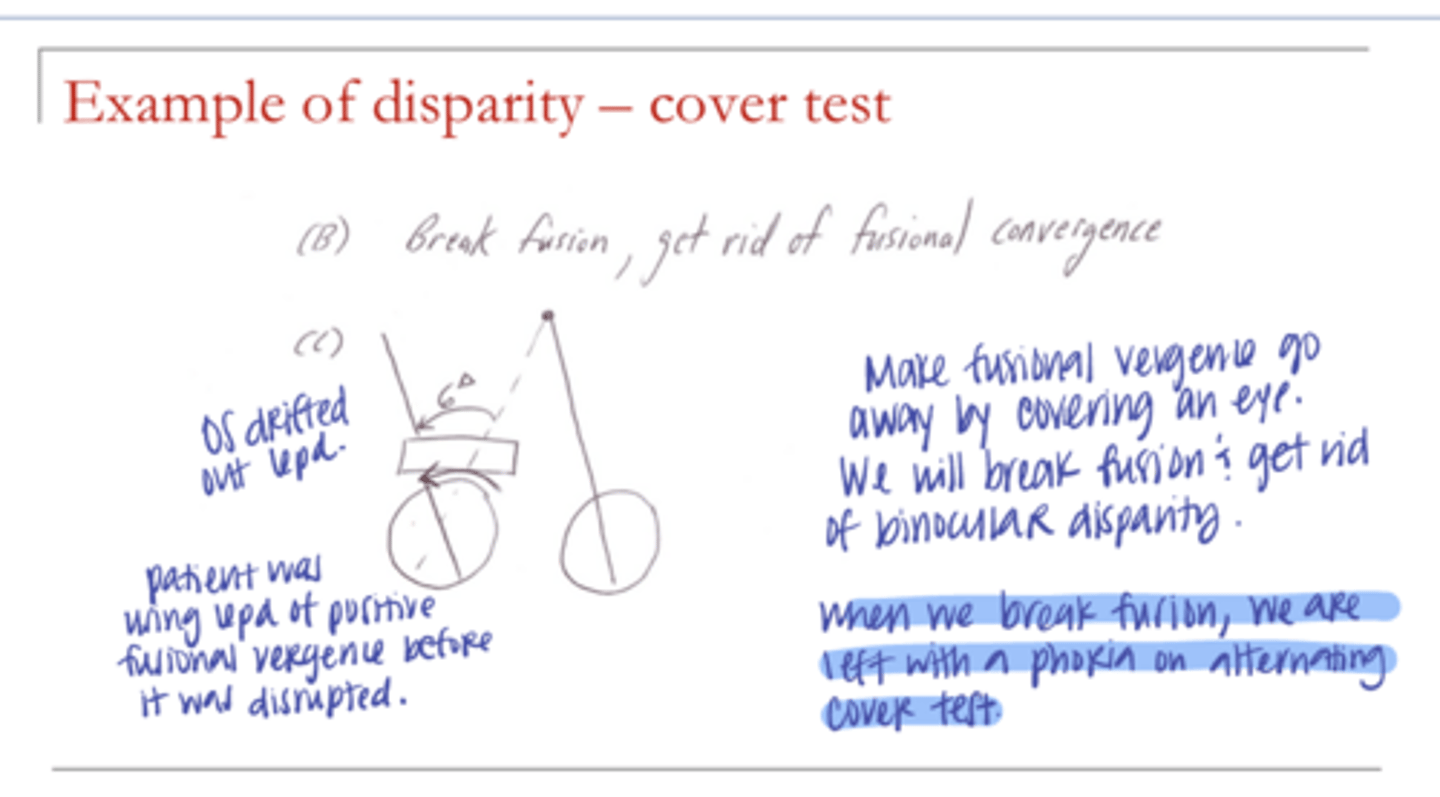 Example of disparity – cover test
(B) Break fusion, get rid of fusional convergence
(C)
6Δ
OS drifted
out 6pd.
patient was
using 6pd of positive
fusional vergence before
it was disrupted.
Make fusional vergence go
away by covering an eye.
We will break fusion & get rid
of binocular disparity.
When we break fusion, we are
left with a phoria on alternating
cover test.